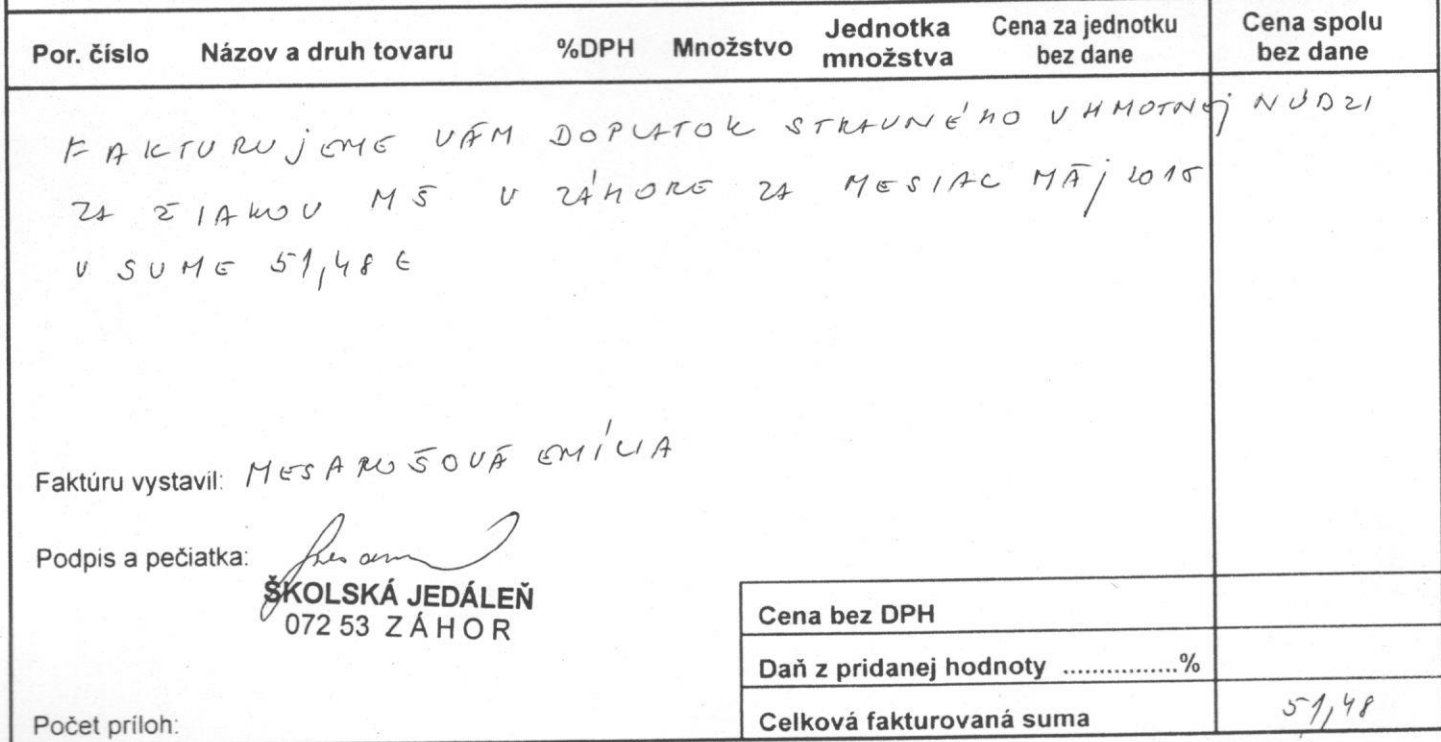 Por. číslo Názov a druh tovaru %DPH Množstvo Jednotka množstva Cena za jednotku bez dane Cena spolu bez dane
FAKTURUJEME VÁM DOPLATOK STRAVNÉHO V HMOTNEJ NÚDZI
ZA ŽIAKOV MŠ V ZÁHORE ZA MESIAC MÁJ 2015
V SUME 51,48 €
Faktúru vystavil: MESAROŠOVÁ EMÍLIA
Podpis a pečiatka:
ŠKOLSKÁ JEDÁLEŇ
072 53 ZÁHOR
Cena bez DPH
Daň z pridanej hodnoty ................%
Celková fakturovaná suma 51,48
Počet príloh: